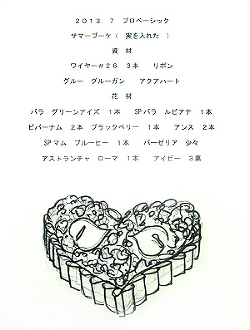 2013．7　プロベーシック
サマーブーケ（　実を入れた　）
資　材
ワイヤー＃26　3本　　リボン
グルー　グルーガン　　アクアハート
花　材
バラ　グリーンアイズ　1本　　SPバラ　ルビアナ　1本
ビバーナム　2本　ブラックベリー　1本　　アンス　2本
SPマム　ブルーヒー　1本　　バーゼリア　少々
アストランチャ　ローマ　1本　　アイビー　3葉